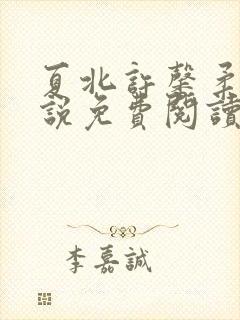 夏北許馨柔
說免費閱讀
李嘉誠